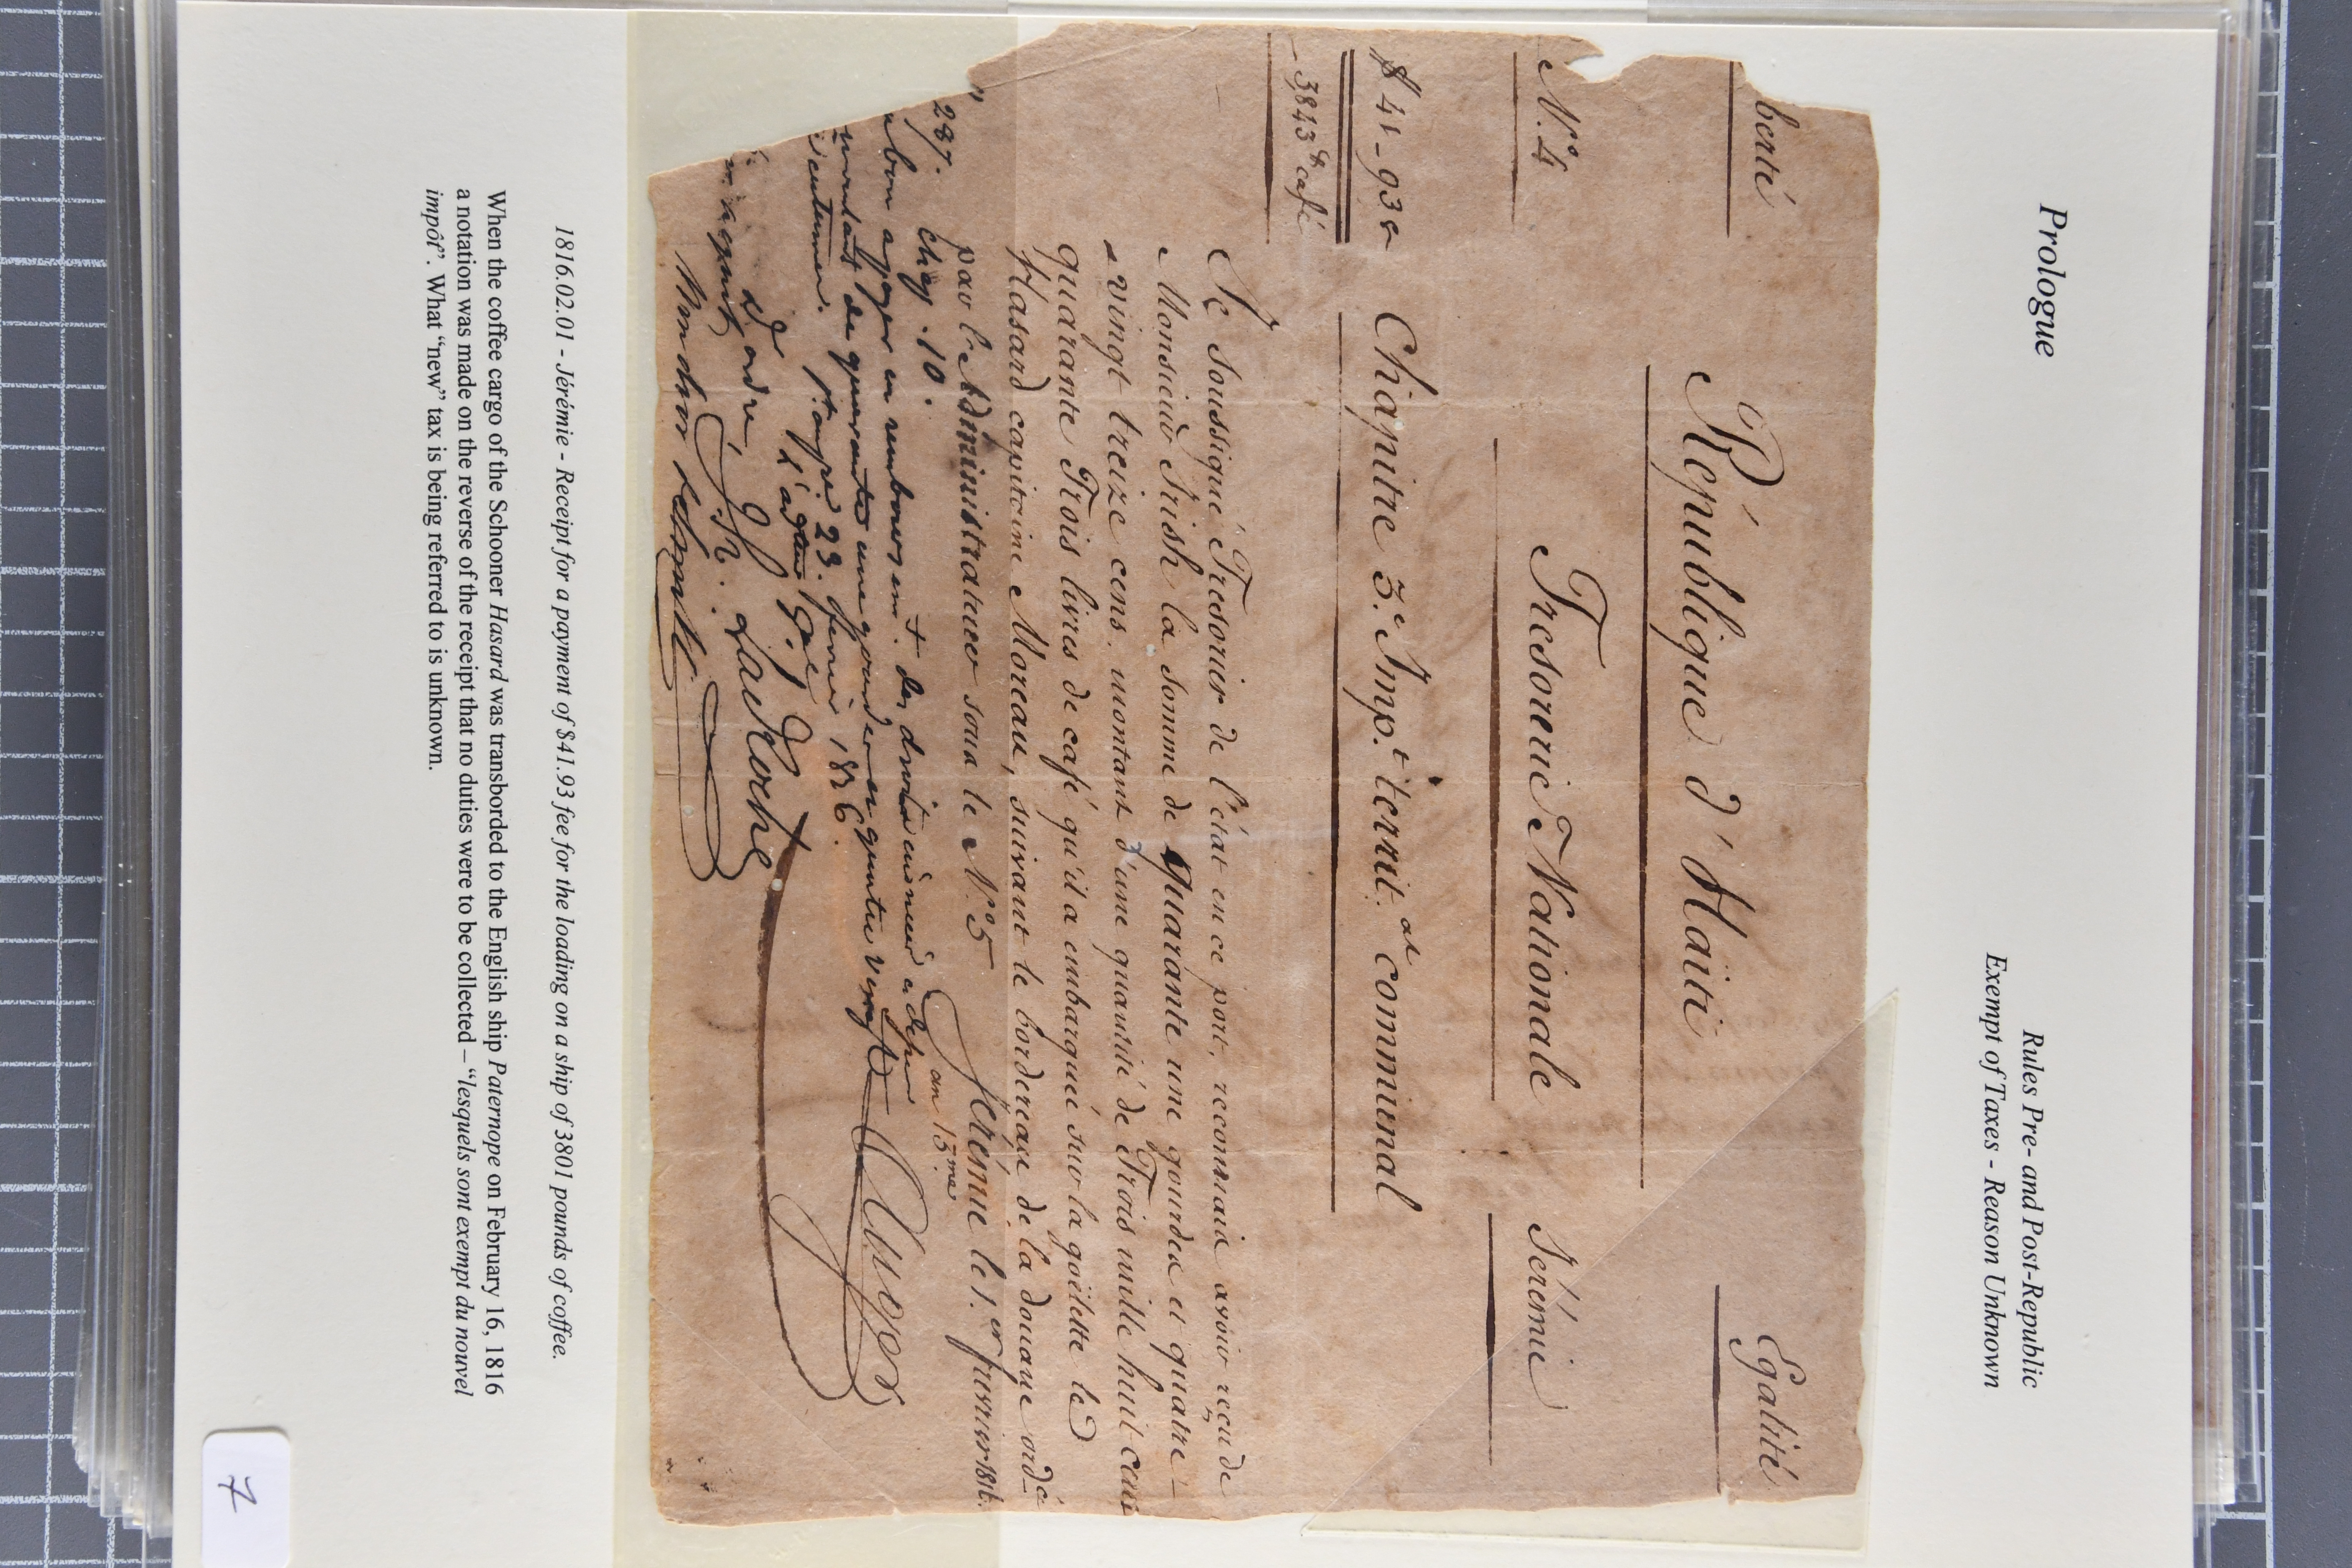 Prologue
Rules Pre- and Post-Republic
Exempt of Taxes - Reason Unknown
berté
Egalité
République d'Haïti
N.º 4
Tresorerie Nationale
Jérémie
$ 41 - 93 c
Chapitre 3.e Imp.t territ.al communal
3843 ℔ café
Je Soussigné Tresorier de l'état en ce port, reconnais avoir reçu de
Monsieur Irish la somme de Quarante une gourdes et quatre-
vingt treize cens. montant d'une quantité de Trois mille huit cens
quarante Trois livres de café qu'il a embarqué sur la goëlette le
Hasard capitaine Moreau, suivant le bordereau de la douane ord.cé
par l'Administrateur sous le N.º 5
Jérémie le 1.er fevrier 1816.
an 13.me
287. Chap. 10.
bon a payer en rembours.mt des droits
montant de quarante une gourdes et quatre vingt
p. au p. 23. fevrier 1816.
d'ordre
J. h. Laroche
Auger
1816.02.01 - Jérémie - Receipt for a payment of $41.93 fee for the loading on a ship of 3801 pounds of coffee.
When the coffee cargo of the Schooner Hasard was transborded to the English ship Paternope on February 16, 1816
a notation was made on the reverse of the receipt that no duties were to be collected – “lesquels sont exempt du nouvel
impôt”. What “new” tax is being referred to is unknown.
7